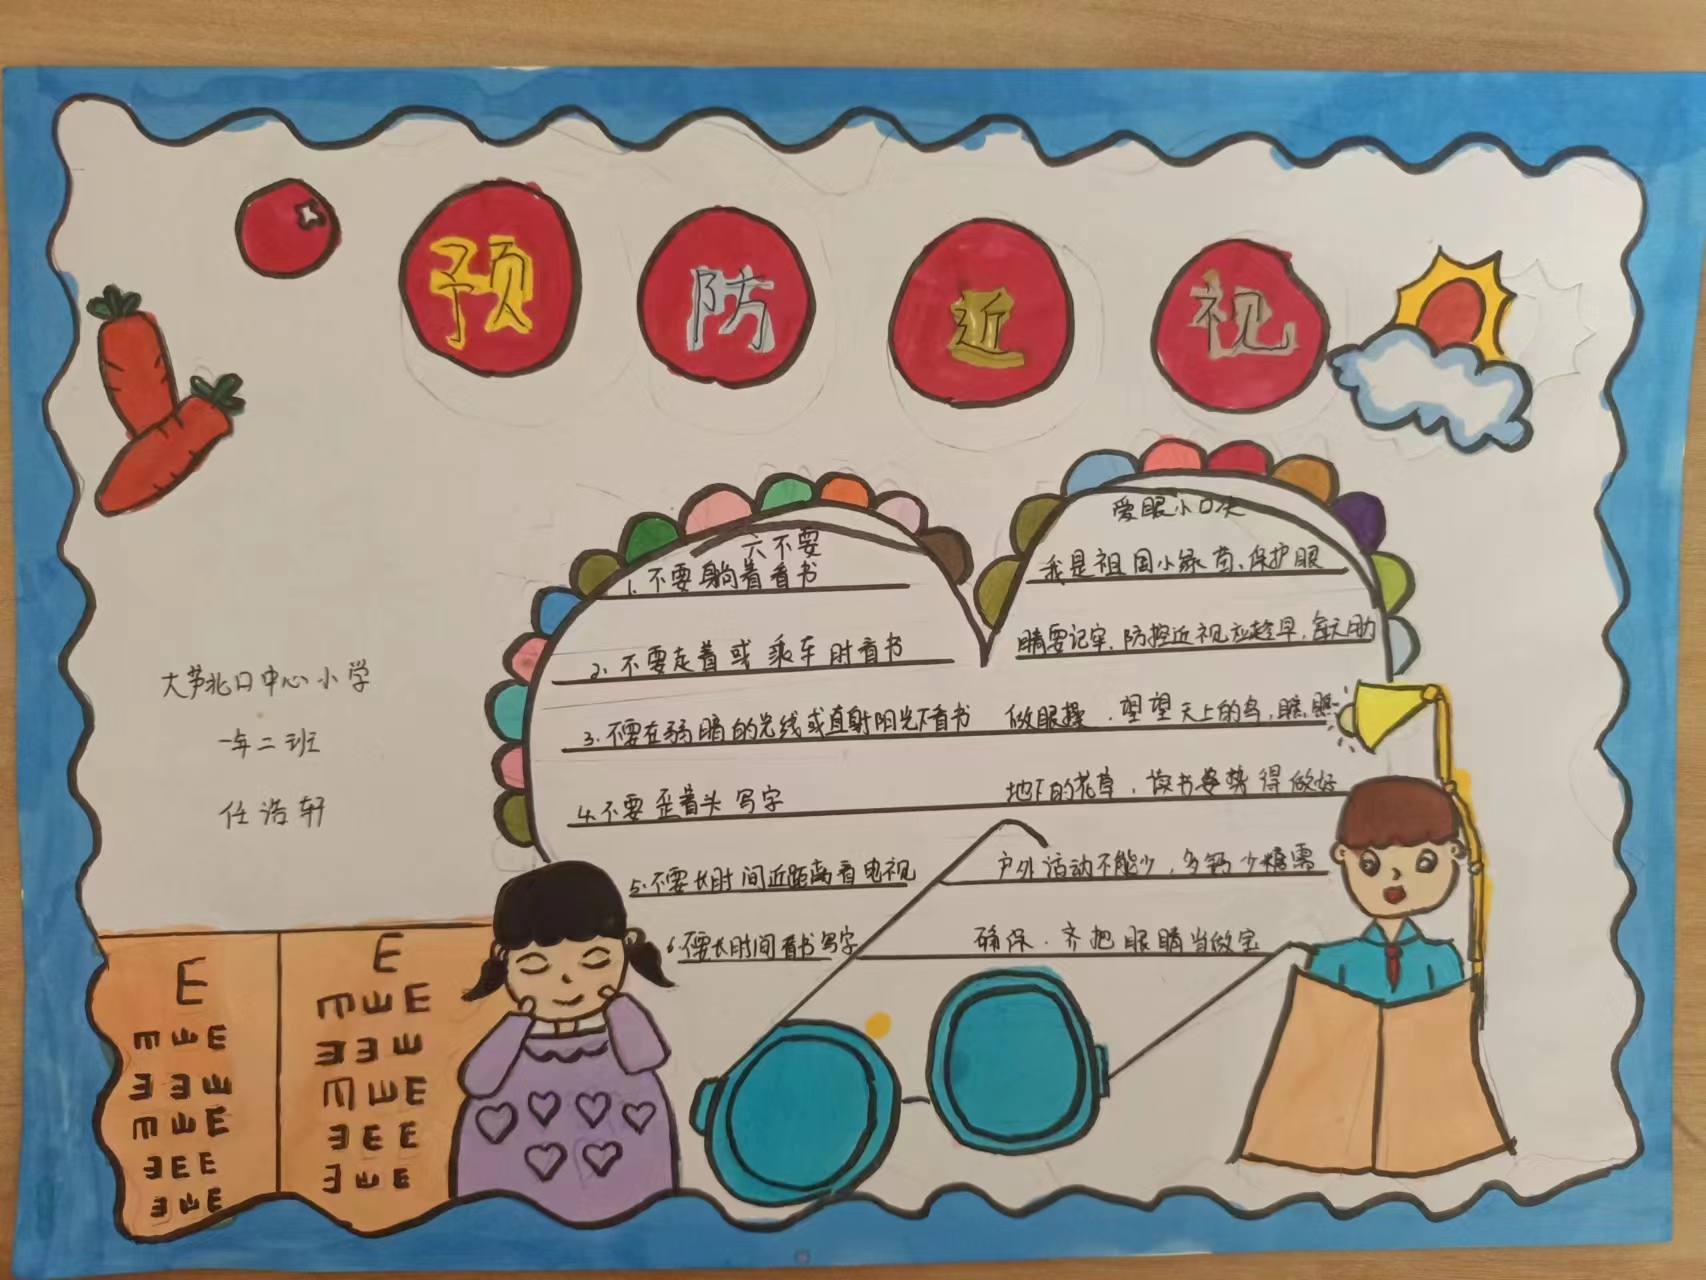 预防近视
大芦北口中心小学
一年二班
任浩轩
六不要
1.不要躺着看书
2.不要走着或乘车时看书
3.不要在弱暗的光线或直射阳光下看书
4.不要歪着头写字
5.不要长时间近距离看电视
6.不要长时间看书写字
爱眼小口决
我是祖国小绿苗、保护眼
睛要记牢,防控近视应趁早,每天用力
做眼操,望望天上的鸟,瞧瞧
地下的花草,读书姿势得做好
户外活动不能少,多钙少糖需
确保.齐把眼睛当做宝
E
E M E
E E E
E M E
E E E
E E E
E
E E E
E E E
E E E
E E E
E E E